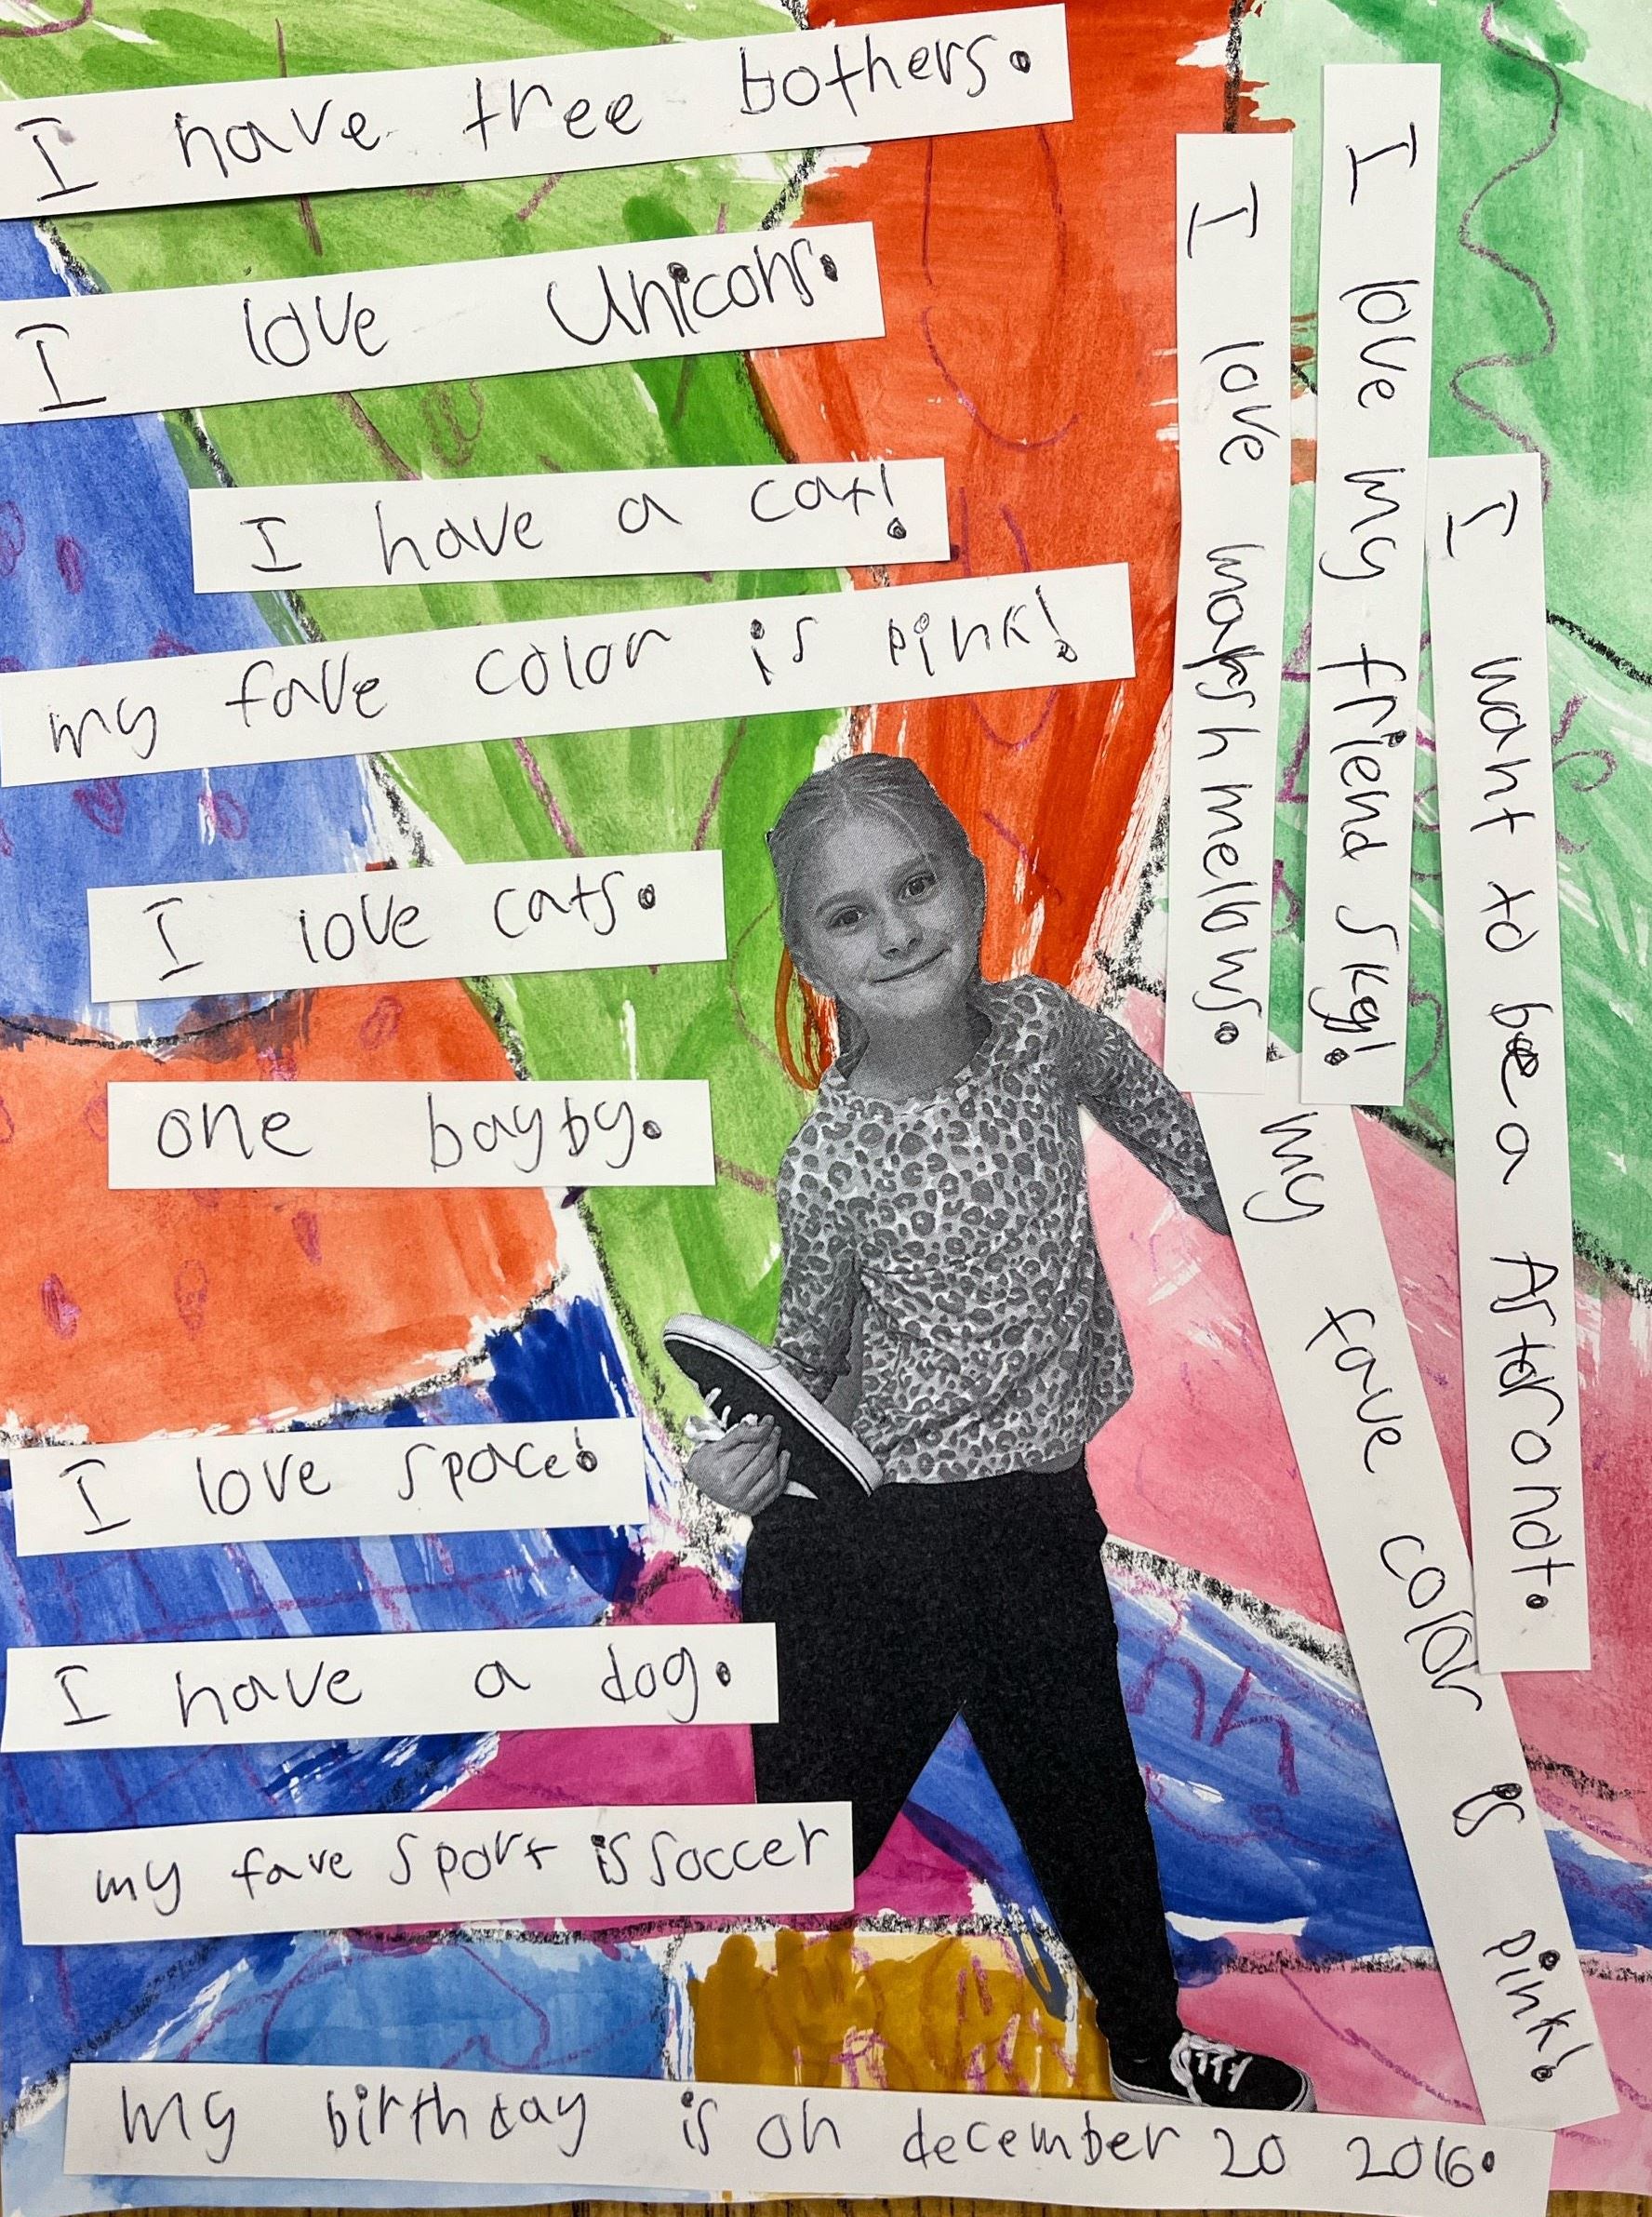 I have tree bothers.
I love Unicons.
I have a cat!
my fave color is pink!
I love cats.
one bayby.
I love space!
I have a dog.
my fave sport is soccer
my birthday is on december 20 2016.
I love marshmellows.
I love my friend Sky!
I want to be a Astoronot.
my fave color is pink!